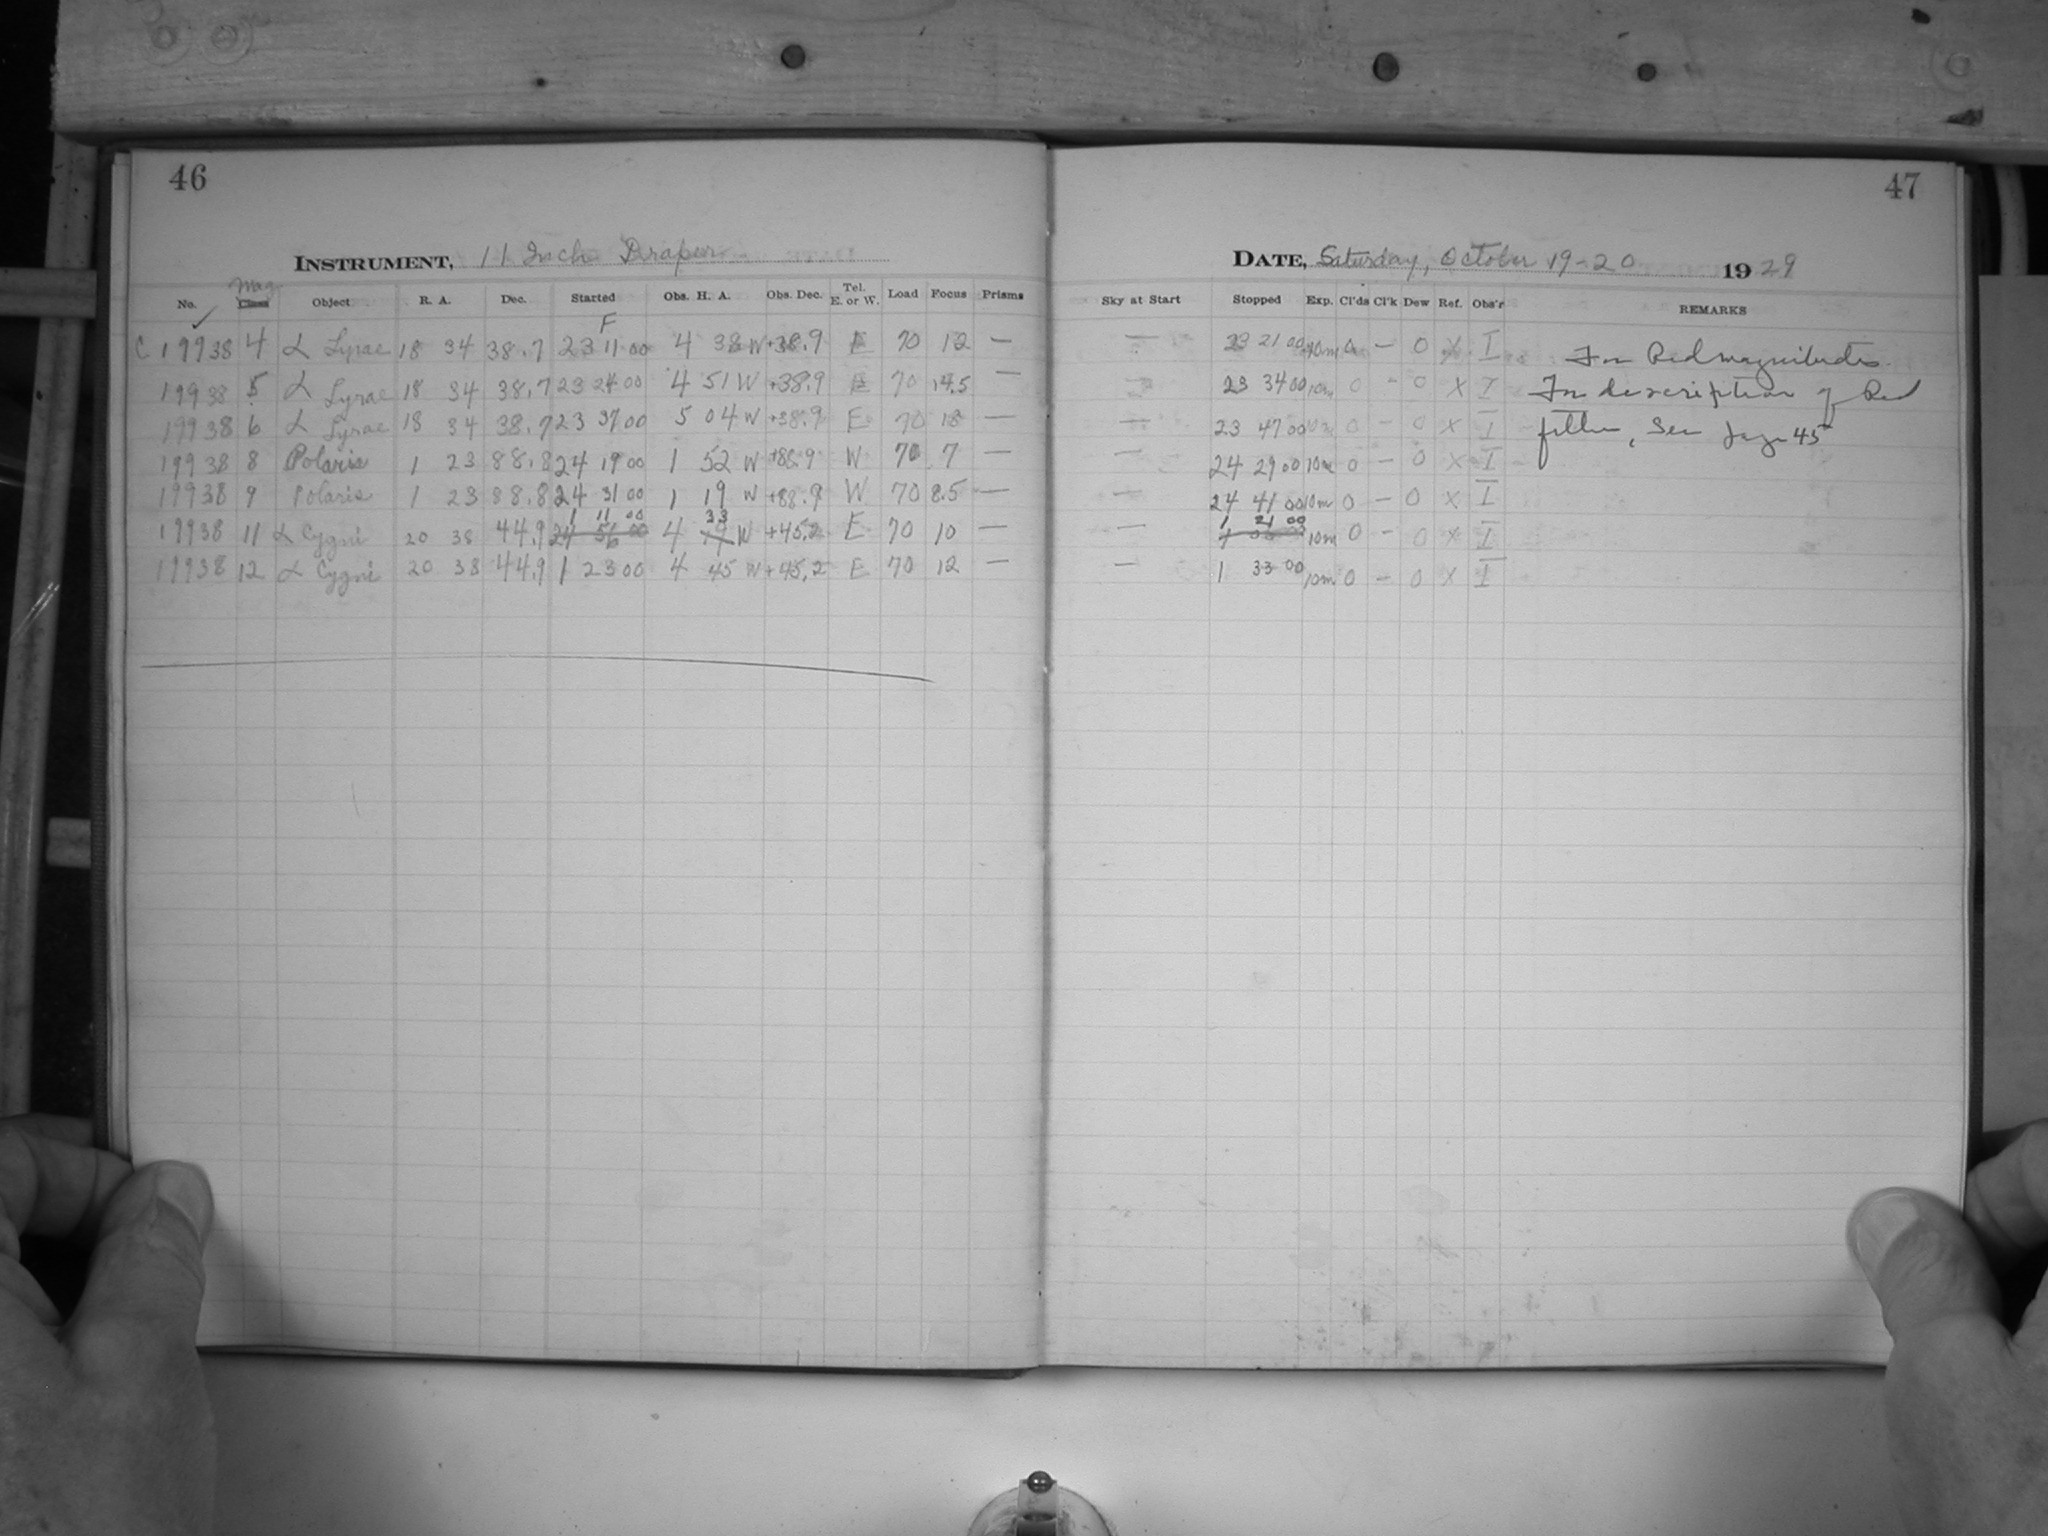 46
INSTRUMENT, 11 Inch Draper
Mag
No. Class Object R. A. Dec. Started Obs. H. A. Obs. Dec. Tel. E. or W. Load Focus Prisms
✓ F
C 19938 4 α Lyrae 18 34 38.7 23 11 00 4 38 W +38.9 E 70 12 —
19938 5 α Lyrae 18 34 38.7 23 24 00 4 51 W +38.9 E 70 14.5 —
19938 6 α Lyrae 18 34 38.7 23 37 00 5 04 W +38.9 E 70 18 —
19938 8 Polaris 1 23 88.8 24 19 00 1 52 W +88.9 W 70 7 —
19938 9 Polaris 1 23 88.8 24 31 00 1 19 W +88.9 W 70 8.5 —
1 11 00 33
19938 11 α Cygni 20 38 44.9 24 56 00 4 W +45.2 E 70 10 —
19938 12 α Cygni 20 38 44.9 1 23 00 4 45 W +45.2 E 70 12 —
47
DATE, Saturday, October 19-20 1929
Sky at Start Stopped Exp. Cl'ds Cl'k Dew Ref. Obs'r REMARKS
— 23 21 00 10m 0 — 0 X I For Red magnitudes.
— 23 34 00 10m 0 - 0 X I For description of Red
— 23 47 00 10m 0 — 0 X I filter, See page 45
— 24 29 00 10m 0 — 0 X I
— 24 41 00 10m 0 — 0 X I
1 21 00
— 10m 0 - 0 X I
— 1 33 00 10m 0 — 0 X I